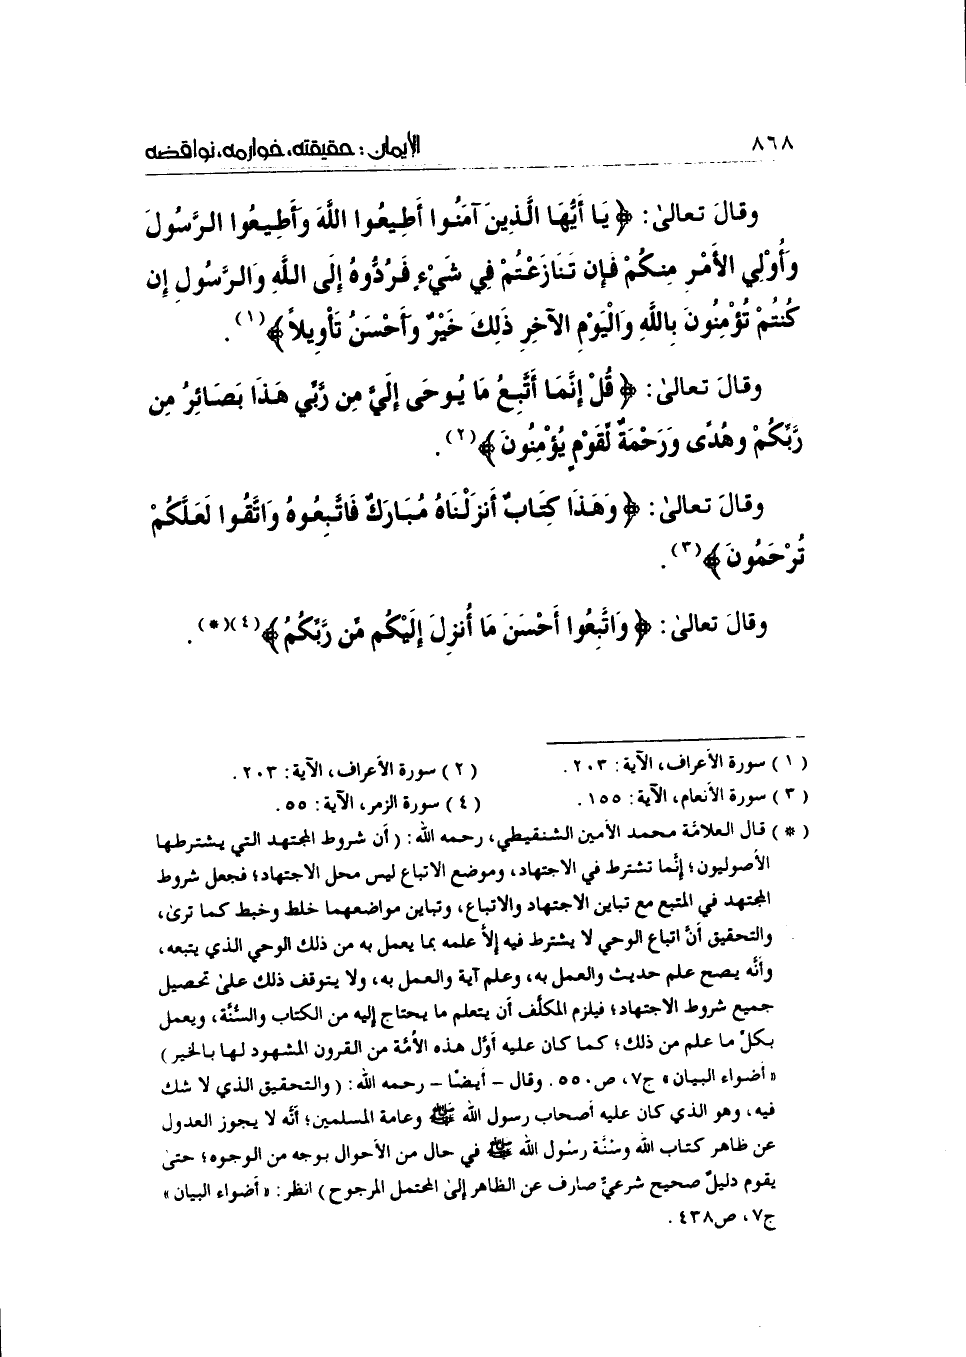 ٨٦٨ الإيمان: حقيقته، خوارمه، نواقضه
وقالَ تعالىٰ: ﴿يَا أَيُّهَا الَّذِينَ آمَنُوا أَطِيعُوا اللَّهَ وَأَطِيعُوا الرَّسُولَ
وَأُوْلِي الأَمْرِ مِنكُمْ فَإِن تَنَازَعْتُمْ فِي شَيْءٍ فَرُدُّوهُ إِلَى اللَّهِ وَالرَّسُولِ إِن
كُنتُمْ تُؤْمِنُونَ بِاللَّهِ وَالْيَوْمِ الآخِرِ ذَلِكَ خَيْرٌ وَأَحْسَنُ تَأْوِيلاً﴾(١).
وقالَ تعالىٰ: ﴿قُلْ إِنَّمَا أَتَّبِعُ مَا يُوحَى إِلَيَّ مِن رَّبِّي هَذَا بَصَائِرُ مِن
رَّبِّكُمْ وهُدًى وَرَحْمَةٌ لِّقَوْمٍ يُؤْمِنُونَ﴾(٢).
وقالَ تعالىٰ: ﴿وَهَذَا كِتَابٌ أَنزَلْنَاهُ مُبَارَكٌ فَاتَّبِعُوهُ وَاتَّقُوا لَعَلَّكُمْ
تُرْحَمُونَ﴾(٣).
وقالَ تعالىٰ: ﴿وَاتَّبِعُوا أَحْسَنَ مَا أُنزِلَ إِلَيْكُم مِّن رَّبِّكُمُ﴾(٤)(*).
(١) سورة الأعراف، الآية: ٢٠٣. (٢) سورة الأعراف، الآية: ٢٠٣.
(٣) سورة الأنعام، الآية: ١٥٥. (٤) سورة الزمر، الآية: ٥٥.
(*) قال العلامَّة محمد الأمين الشنقيطي، رحمه الله: (أن شروط المجتهد التي يشترطها
الأصوليون؛ إنَّما تشترط في الاجتهاد، وموضع الاتباع ليس محل الاجتهاد؛ فجعل شروط
المجتهد في المتبع مع تباين الاجتهاد والاتباع، وتباين مواضعهما خلط وخبط كما ترىٰ،
والتحقيق أنَّ اتباع الوحي لا يشترط فيه إلاَّ علمه بما يعمل به من ذلك الوحي الذي يتبعه،
وأنَّه يصح علم حديث والعمل به، وعلم آية والعمل به، ولا يتوقف ذلك علىٰ تحصيل
جميع شروط الاجتهاد؛ فيلزم المكلَّف أن يتعلم ما يحتاج إليه من الكتاب والسُّنَّة، ويعمل
بكلِّ ما علم من ذلك؛ كما كان عليه أوَّل هذه الأمَّة من القرون المشهود لها بالخير)
«أضواء البيان» ج٧، ص٥٥٠. وقال - أيضًا - رحمه الله: (والتحقيق الذي لا شك
فيه، وهو الذي كان عليه أصحاب رسول الله ﷺ وعامة المسلمين؛ أنَّه لا يجوز العدول
عن ظاهر كتاب الله وسُنَّة رسُول الله ﷺ في حال من الأحوال بوجه من الوجوه؛ حتىٰ
يقوم دليلٌ صحيح شرعيٌّ صارف عن الظاهر إلىٰ المحتمل المرجوح) انظر: «أضواء البيان»
ج٧، ص٤٣٨.